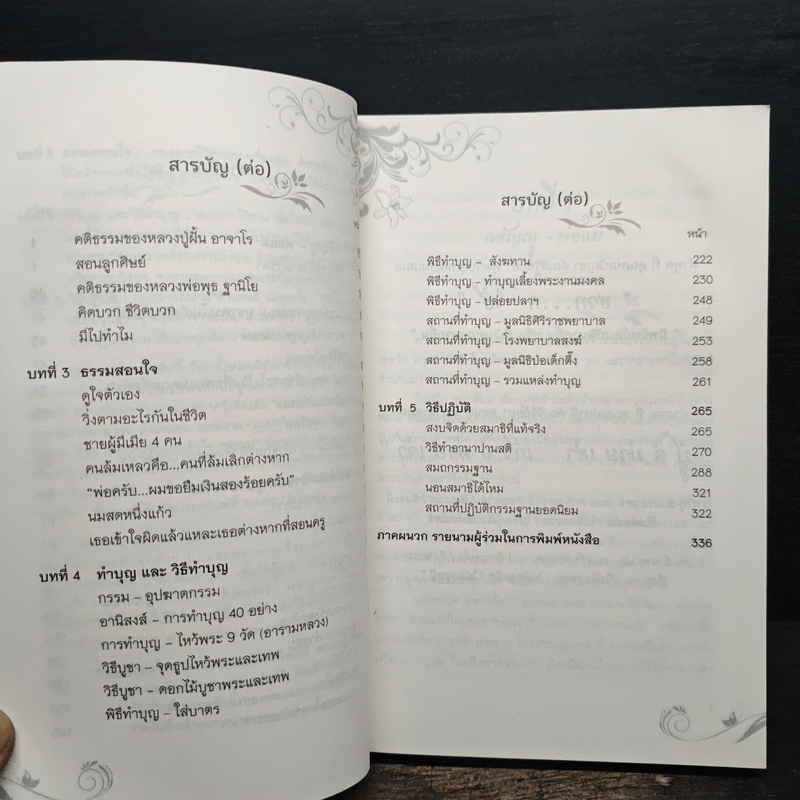 สารบัญ (ต่อ)
คติธรรมของหลวงปู่ฝั้น อาจาโร
สอนลูกศิษย์
คติธรรมของหลวงพ่อพุธ ฐานิโย
คิดบวก ชีวิตบวก
มีไปทำไม
บทที่ 3 ธรรมสอนใจ
ดูใจตัวเอง
วิ่งตามอะไรกันในชีวิต
ชายผู้มีเมีย 4 คน
คนล้มเหลวคือ...คนที่ล้มเลิกต่างหาก
“พ่อครับ...ผมขอยืมเงินสองร้อยครับ”
นมสดหนึ่งแก้ว
เธอเข้าใจผิดแล้วแหละเธอต่างหากที่สอนครู
บทที่ 4 ทำบุญ และ วิธีทำบุญ
กรรม – อุปฆาตกรรม
อานิสงส์ – การทำบุญ 40 อย่าง
การทำบุญ – ไหว้พระ 9 วัด (อารามหลวง)
วิธีบูชา – จุดธูปไหว้พระและเทพ
วิธีบูชา – ดอกไม้บูชาพระและเทพ
พิธีทำบุญ – ใส่บาตร
สารบัญ (ต่อ)
หน้า
พิธีทำบุญ – สังฆทาน 222
พิธีทำบุญ – ทำบุญเลี้ยงพระงานมงคล 230
พิธีทำบุญ – ปล่อยปลาฯ 248
สถานที่ทำบุญ – มูลนิธิศิริราชพยาบาล 249
สถานที่ทำบุญ – โรงพยาบาลสงฆ์ 253
สถานที่ทำบุญ – มูลนิธิป่อเต็กตึ๊ง 258
สถานที่ทำบุญ – รวมแหล่งทำบุญ 261
บทที่ 5 วิธีปฏิบัติ 265
สงบจิตด้วยสมาธิที่แท้จริง 265
วิธีทำอานาปานสติ 270
สมถกรรมฐาน 288
นอนสมาธิได้ไหม 321
สถานที่ปฏิบัติกรรมฐานยอดนิยม 322
ภาคผนวก รายนามผู้ร่วมในการพิมพ์หนังสือ 336